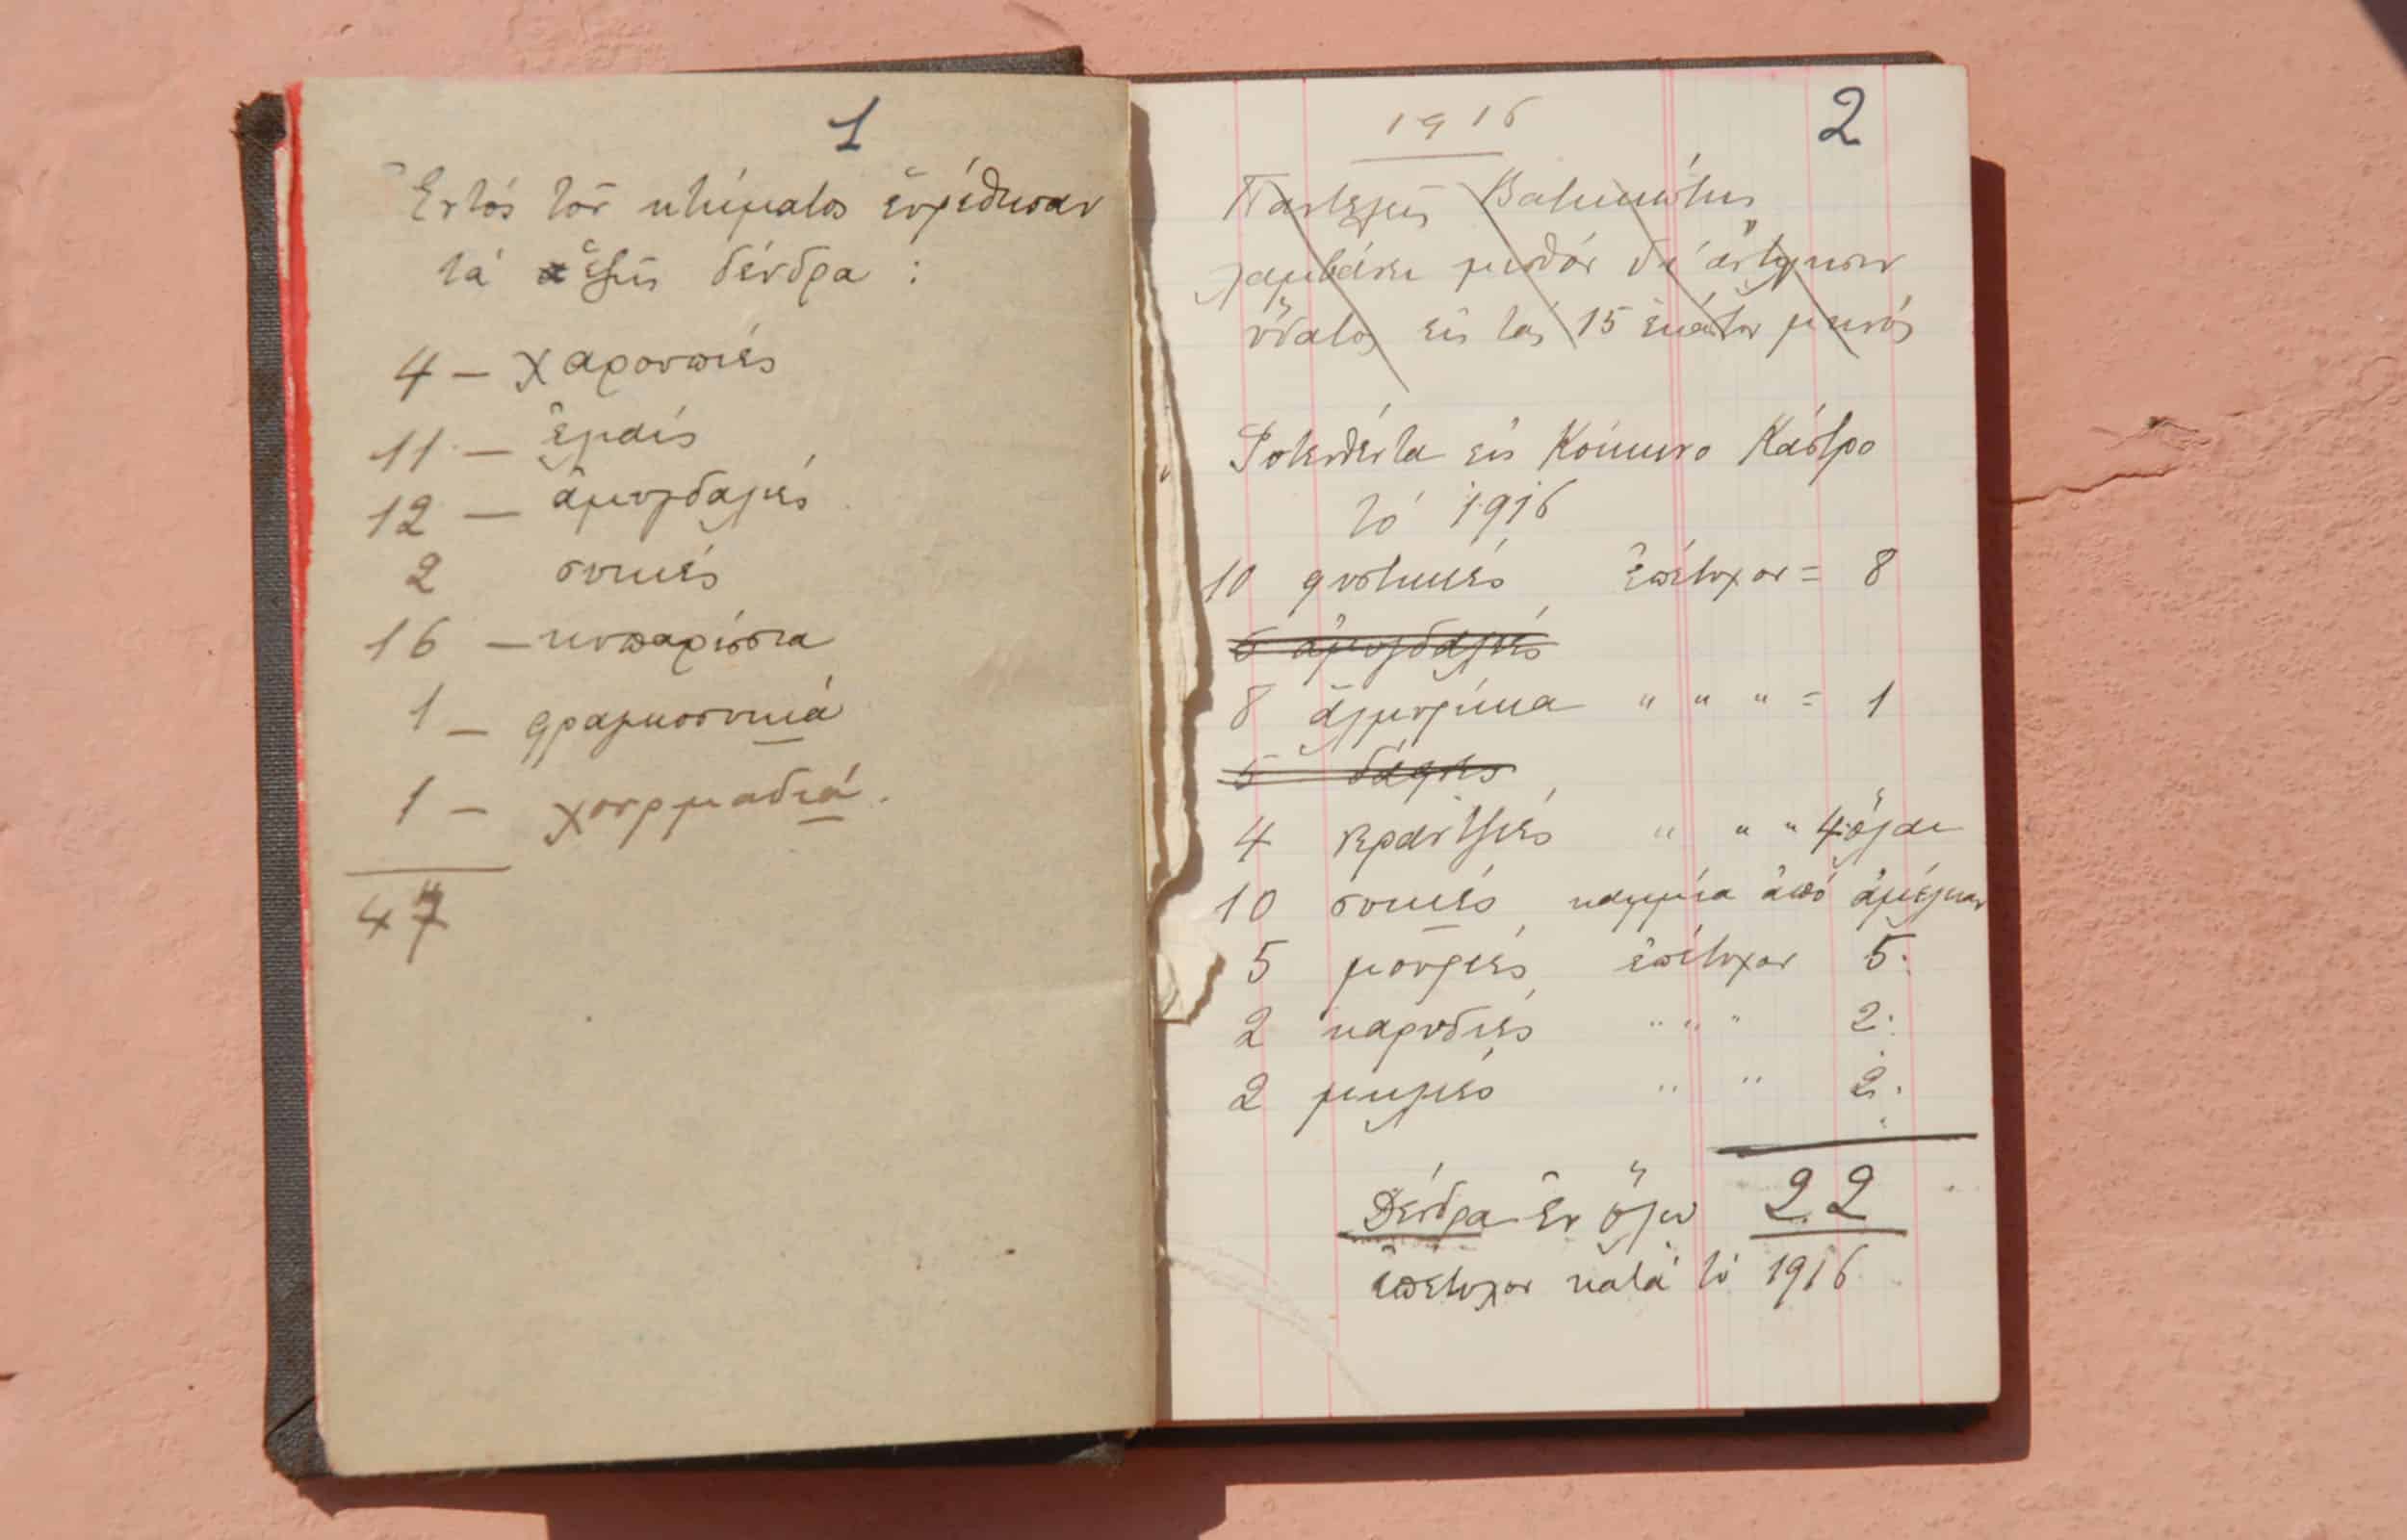 1
Ἐντός τοῦ κτήματος εὑρέθησαν
τά ἑξῆς δένδρα :
4 — χαρουπιές
11 — ἐληές
12 — ἀμυγδαλιές
2 συκιές
16 — κυπαρίσσια
1 — φραγκοσυκιά
1 — χουρμαδιά.
47
2
1916
Παντελῆς
λαμβάνει μισθόν δι' ἄντλησιν
ὕδατος εἰς τάς 15 ἑκάστου μηνός
εἰς Κόκκινο Κάστρο
τό 1916
10 φυστικιές ἐπέτυχον = 8
6 ἀμυγδαλιές
8 ἀλμυρίκια " " " = 1
5 δάφνες
4 " " " 4 ὅλαι
10 συκιές καμμία ἀπό ἀμέλειαν
5 μουριές ἐπέτυχον 5.
2 καρυδιές " " " 2.
2 μηλιές " " 2.
Δένδρα ἐν ὅλῳ 22
ἐπέτυχον κατά τό 1916